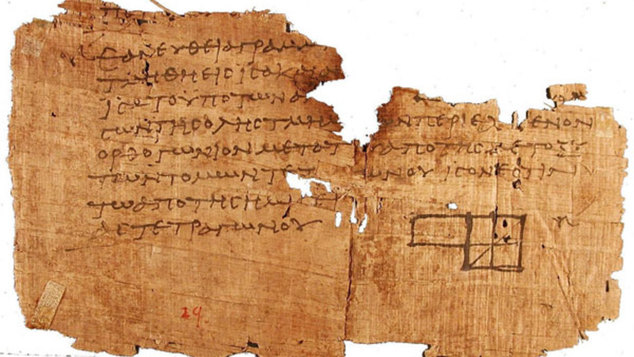 ΕΑΝ ΕΥΘΕΙΑ ΓΡΑΜ
ΤΜΗΘΗ ΕΙϹ ΙϹΑ ΚΑΙ
ΙϹΑ ΤΟ ΥΠΟ ΤΩΝ Α
ϹΩΝ ΤΗϹ ΟΛΗϹ ΤΜΗΜ ΩΝ ΠΕΡΙΕΧ ΜΕΝΟΝ
ΟΡΘΟΓΩΝΙΟΝ ΜΕΤΑ ΤΟΥ ΑΠΟ ΤΗϹ ΜΕΤΟΞΥ
ΤΩΝ ΤΟΜΩΝ ΤΕΤ ΩΝΟΥ ΙϹΟΝ ΕϹΤΙΝ
ΤΩ ΑΠΟ ΤΗϹ ΗΜΙϹΕΙ
ΑϹ ΤΕΤΡΑΓΩΝΟΥ
29